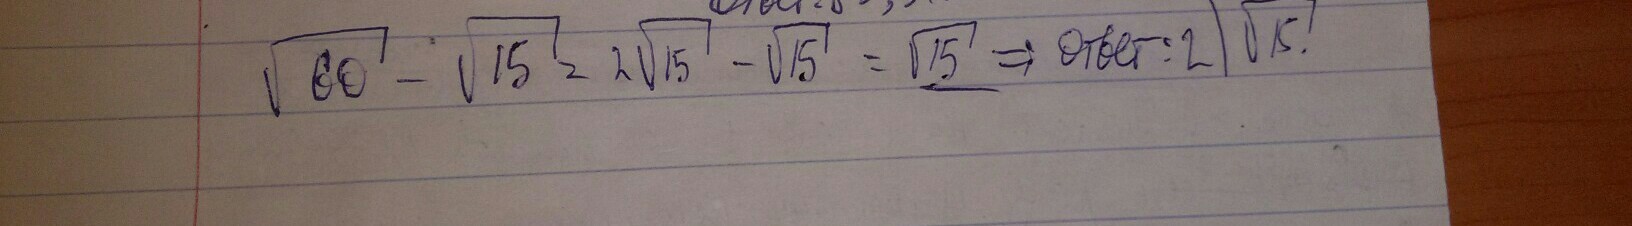 √60 - √15 = 2√15 - √15 = √15 ⇒ Ответ: 2) √15.